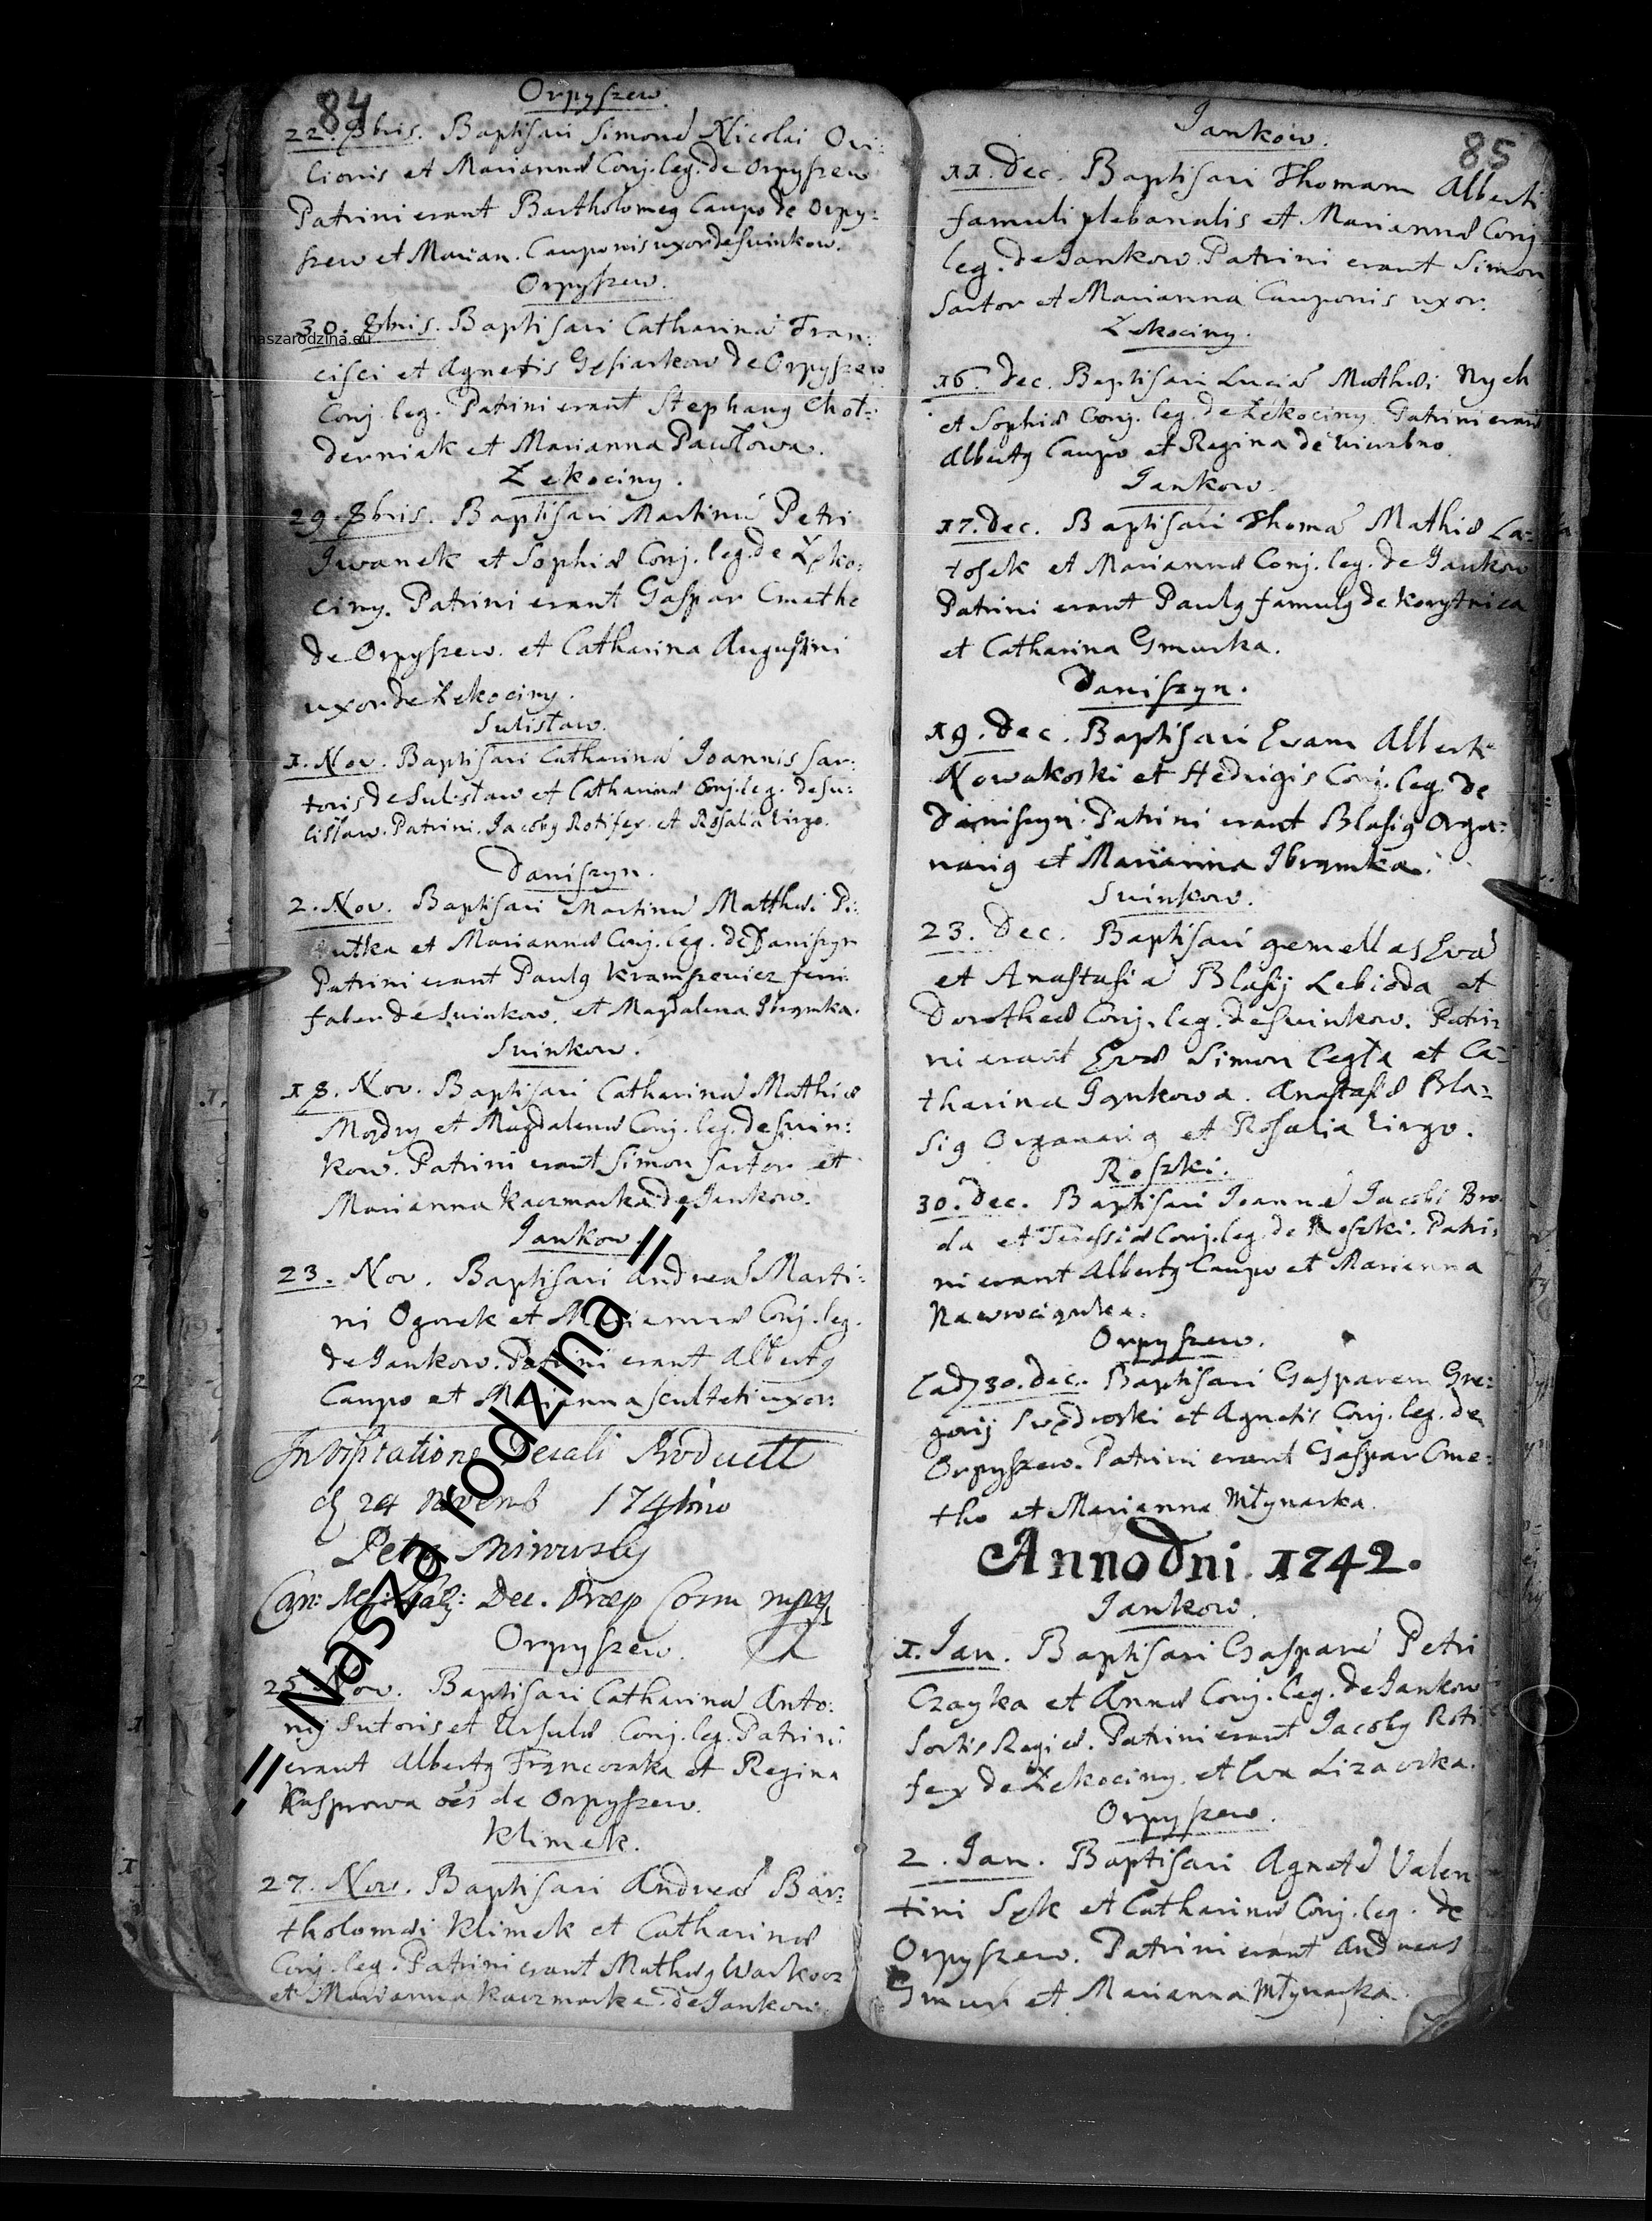 84
Orpyszew.
22. 8bris. Baptisavi Simonē Nicolai Ovi:
lionis et Mariannæ Conj. leg. de Orpyszew
Patrini erant Bartholomeꝰ Caupo de Orpy:
szew et Marian. Cauponis uxor de Suinkow.
Orpyszew.
30. 8bris. Baptisavi Catharinā Fran:
cisci et Agnetis Gęsiarkow de Orpyszew
Conj. leg. Patrini erant Stephanꝰ Choł:
derniak et Marianna Pawłowa.
Łekociny.
29. 8bris. Baptisavi Martinū Petri
Iwanek et Sophiæ Conj. leg. de Łęko:
ciny. Patrini erant Gaspar Cmetho
de Orpyszew. et Catharina Augustini
uxor de Łekociny.
Sulisław.
1. Nov. Baptisavi Catharinā Joannis Sar:
toris de Sulisław et Catharinæ Conj. leg. de Su:
lisław. Patrini. Jacobꝰ Rotifex et Rosalia Virgo.
Daniszyn.
2. Nov. Baptisavi Martinū Matthæi Pi:
utka et Mariannæ Conj. leg. de Daniszyn
Patrini erant Paulꝰ Kramszewicz ferri
faber de Suinkow. et Magdalena Ibrąmka.
Suinkow.
18. Nov. Baptisavi Catharinā Mathiæ
Modry et Magdalenæ Conj. leg. de Suin:
kow. Patrini erant Simon Sartor et
Marianna Kaczmarka de Jankow.
Jankow.
23. Nov. Baptisavi Andreā Marti:
ni Ogorek et Mariannæ Conj. leg.
de Jankow. Patrini erant Albertꝰ
Caupo et Marianna sculteti uxor.
In Visitatione Decali Producitt
d 24 Novemb 1741mo
Petr
Can: Dec. Præp
Orpyszew.
25. Nov. Baptisavi Catharinā Anto:
nij Sutoris et Ursulæ Conj. leg. Patrini
erant Albertꝰ Francozaka et Regina
Kasprowa oēs de Orpyszew.
Klimek.
27. Nov. Baptisavi Andreā Bar:
tholomæi Klimek et Catharinæ
Conj. leg. Patrini erant Mathæꝰ Warkocz
et Marianna Kaczmarka de Jankow.
85
Jankow.
11. Dec. Baptisavi Thomam Alberti
famuli plebanalis et Mariannæ Conj.
leg. de Jankow. Patrini erant Simon
Sartor et Marianna Cauponis uxor.
Łekociny.
16. Dec. Baptisavi Luciā Mathæi Nych
et Sophiæ Conj. leg. de Łekociny. Patrini erant
Albertꝰ Caupo et Regina de Wierzbno.
Jankow.
17. Dec. Baptisavi Thomā Mathiæ La:
tosek et Mariannæ Conj. leg. de Jankow
Patrini erant Paulꝰ famulꝰ de Korytnica
et Catharina Gmurka.
Daniszyn.
19. Dec. Baptisavi Evam Alberti
Nowakoski et Hedvigis Conj. leg. de
Daniszyn. Patrini erant Blasiꝰ Orga:
nariꝰ et Marianna Ibrąmka.
Suinkow.
23. Dec. Baptisavi gemellas Evā
et Anastasiā Blasij Lebioda et
Dorotheæ Conj. leg. de Suinkow. Patri:
ni erant Evæ Simon Cegła et Ca:
tharina Jąnkowa. Anastasiæ Bla:
siꝰ Organariꝰ et Rosalia Virgo.
Roszki.
30. Dec. Baptisavi Joannē Jacobi Bro:
da et Teressiæ Conj. leg. de Roszki. Patri:
ni erant Albertꝰ Caupo et Marianna
Nawrociąnka.
Orpyszew.
[ad] 30. Dec. Baptisavi Gasparem Gre:
gorij Swędroski et Agnetis Conj. leg. de
Orpyszew. Patrini erant Gaspar Cme:
tho et Marianna Młynarka.
Anno Dni 1742.
Jankow.
1. Jan. Baptisavi Gasparē Petri
Czayka et Annæ Conj. leg. de Jankow
Sortis Regiæ. Patrini erant Jacobꝰ Roti
fex de Łekociny. et Eva Lizaorka.
Orpyszew.
2. Jan. Baptisavi Agnetē Valen
tini Sęk et Catharinæ Conj. leg. de
Orpyszew. Patrini erant Andreas
Gmur et Marianna Młynarka.
naszarodzina.eu
-=Nasza rodzina=-